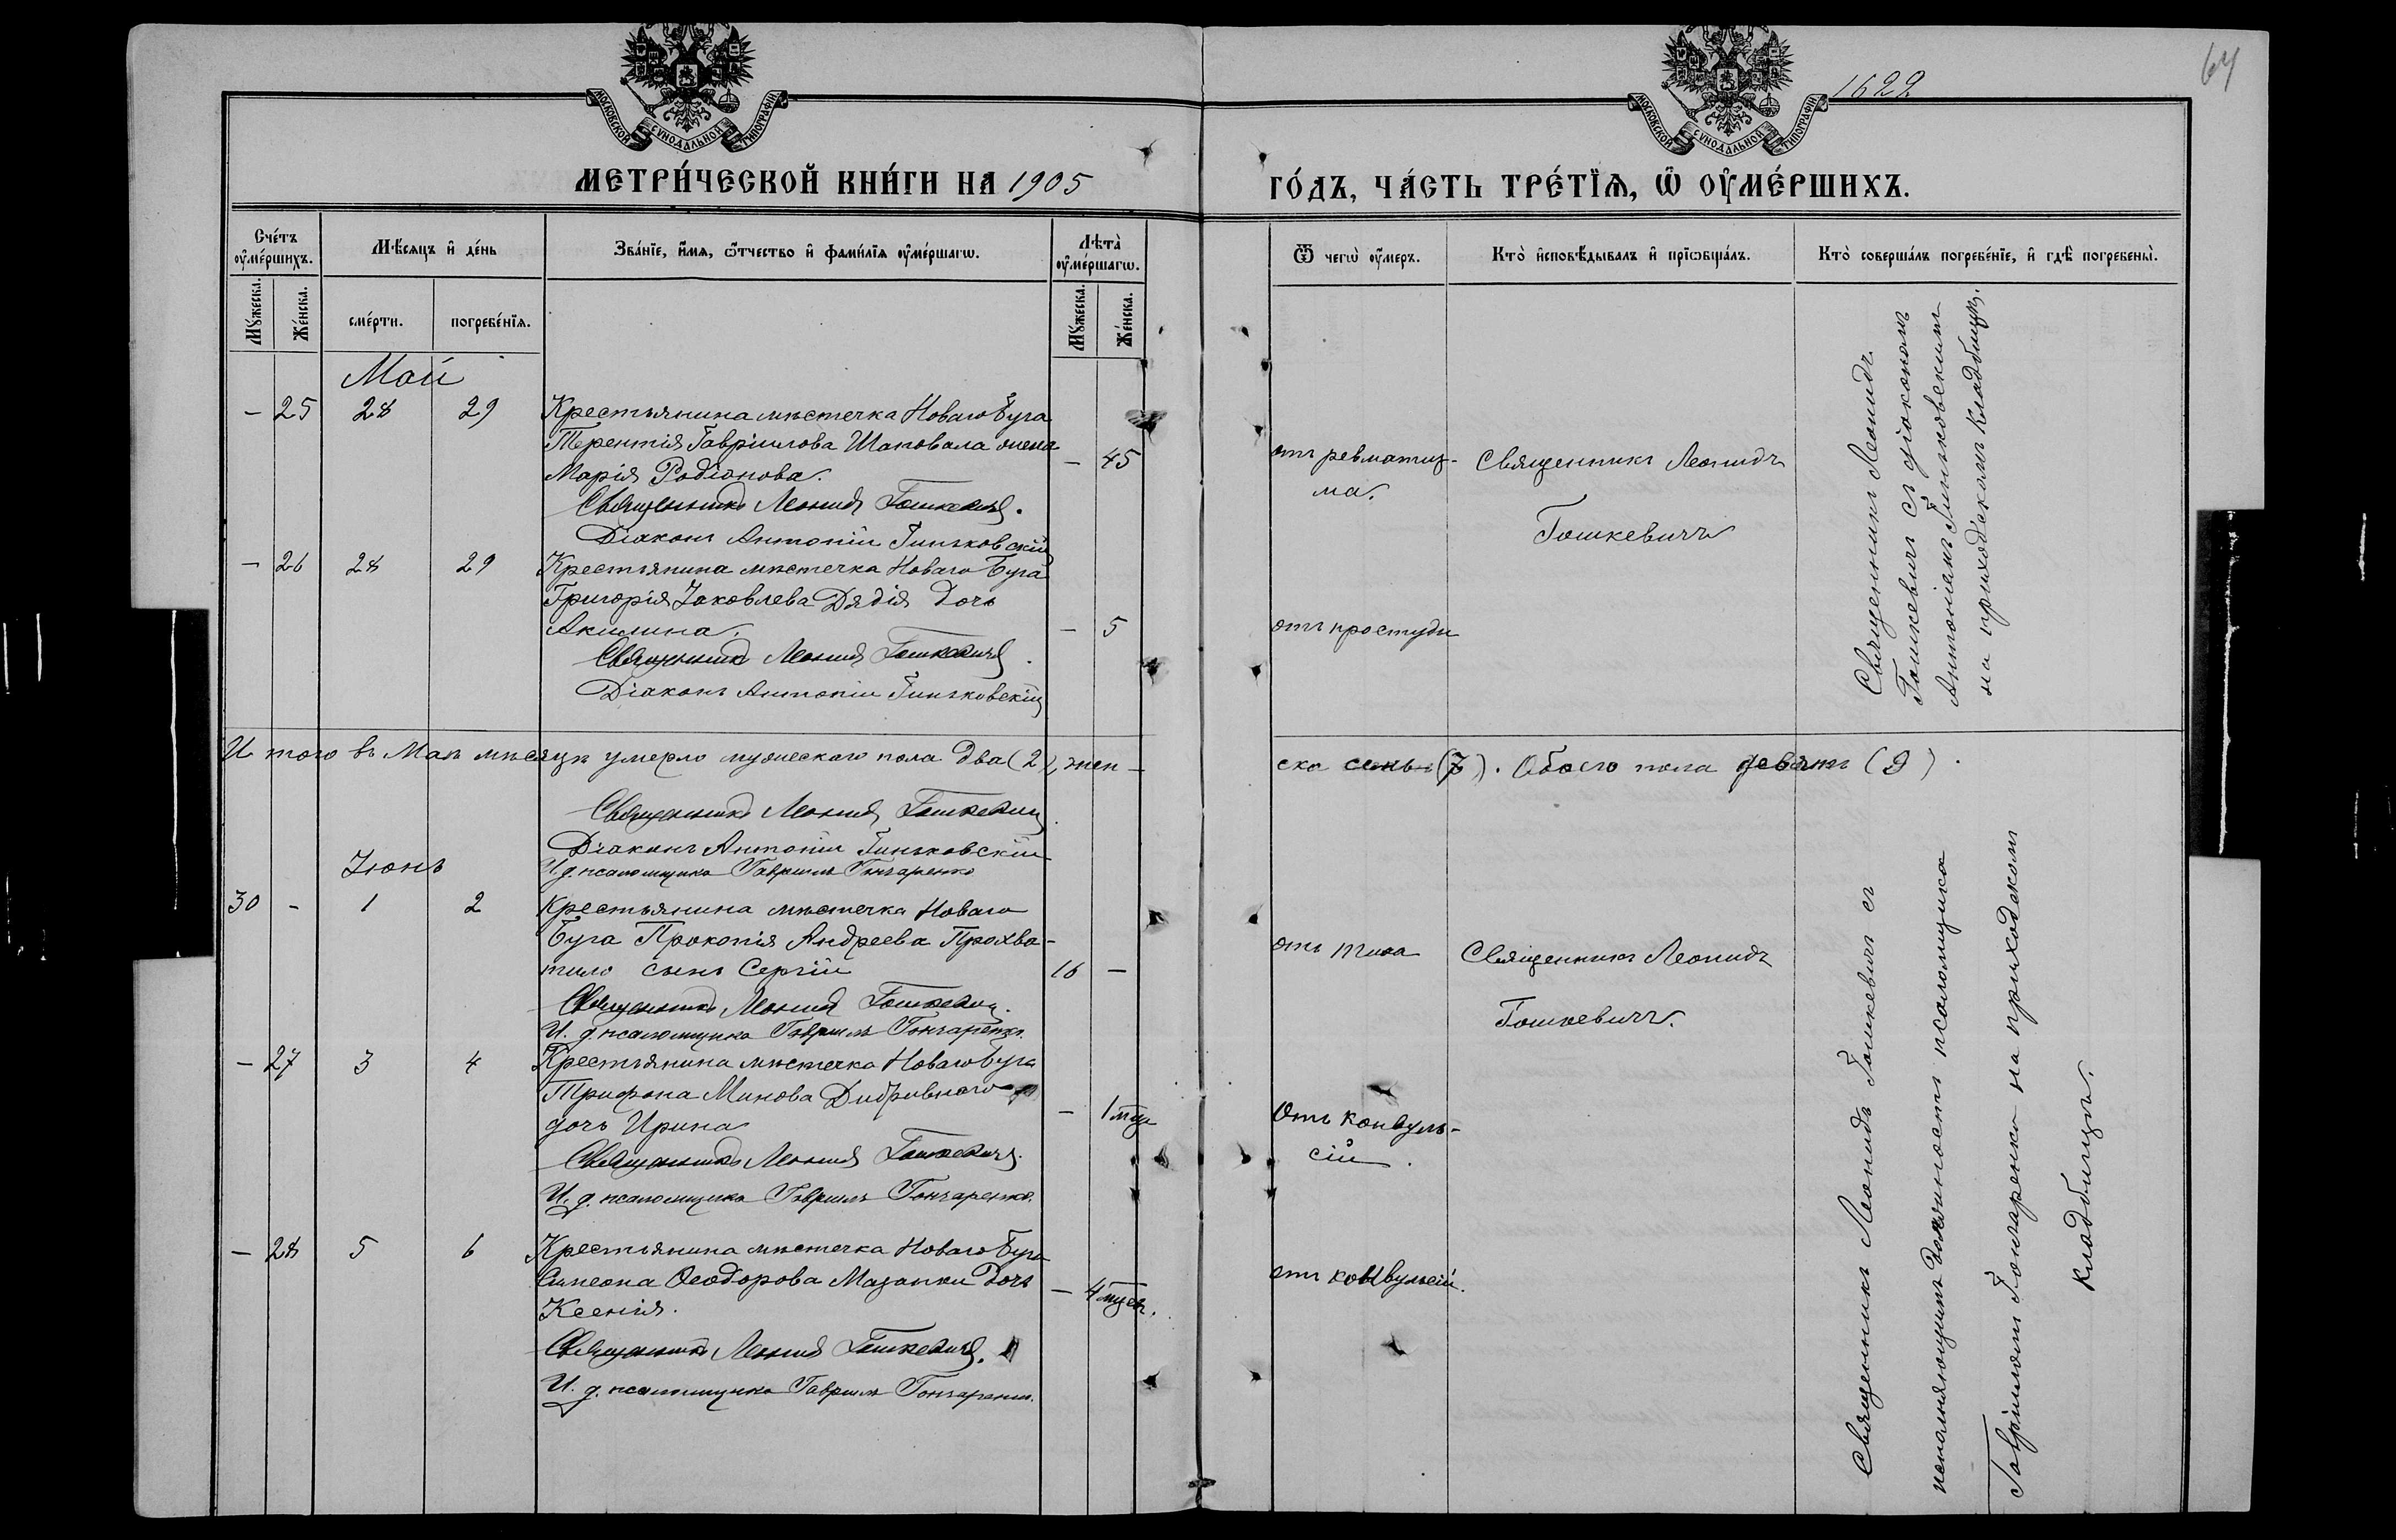 МОСКОВСКОЙ СѴНОДАЛЬНОЙ ТИПОГРАФІИ
МОСКОВСКОЙ СѴНОДАЛЬНОЙ ТИПОГРАФІИ
1622
64
МЕТРИ́ЧЕСКОЙ КНИ́ГИ НА 1905
ГО́ДЪ, ЧА́СТЬ ТРЕ́ТІѦ, Ѽ ОУ҆МЕ́РШИХЪ.
Сче́тъ оу҆ме́ршихъ.
Мѣ́сяцъ и҆ де́нь
Зва́нїе, и҆́мя, ѻ҆́тчество и҆ фами́лїя оу҆ме́ршагѡ.
Лѣта̀ оу҆ме́ршагѡ.
Ѿ чегѡ̀ оу҆́меръ.
Кто̀ и҆сповѣ́дывалъ и҆ прїѡбща́лъ.
Кто̀ соверша́лъ погребе́нїе, и҆ гдѣ̀ погребены̀.
Мꙋ́жеска.
Же́нска.
сме́рти.
погребе́нїя.
Мꙋ́жеска.
Же́нска.
Май
- 25 28 29 Крестьянина мѣстечка Новаго Буга
Терентія Гавріилова Шаповала жена
Марія Родіонова. - 45
Священникъ Леонидъ Гошкевичъ.
Діаконъ Антоній Гиньковскій
отъ ревматиз-
ма.
Священникъ Леонидъ
Гошкевичъ
Священникъ Леонидъ
Гошкевичъ съ діакономъ
Антоніемъ Гиньковскимъ
на приходскомъ кладбищѣ.
- 26 28 29 Крестьянина мѣстечка Новаго Буга
Григорія Іаковлева Дядія дочь
Акилина. - 5
Священникъ Леонидъ Гошкевичъ.
Діаконъ Антоній Гиньковскій
отъ простуды
Итого въ Маѣ мѣсяцѣ умерло мужескаго пола два (2), жен-
ска семь (7). Обоего пола девять (9).
Священникъ Леонидъ Гошкевичъ.
Діаконъ Антоній Гиньковскій
И. д. псаломщика Гавріилъ Гончаренко
Іюнь
30 - 1 2 Крестьянина мѣстечка Новаго
Буга Прокопія Андреева Прохва-
тило сынъ Сергій 16 -
Священникъ Леонидъ Гошкевичъ.
И. д. псаломщика Гавріилъ Гончаренко.
отъ тифа
Священникъ Леонидъ
Гошкевичъ.
Священникъ Леонидъ Гошкевичъ съ
исполняющимъ должность псаломщика
Гавріиломъ Гончаренко на приходскомъ
кладбищѣ.
- 27 3 4 Крестьянина мѣстечка Новаго Буга
Трифона Минова Дибривного
дочь Ирина - 1 мѣц
Священникъ Леонидъ Гошкевичъ.
И. д. псаломщика Гавріилъ Гончаренко.
Отъ конвуль-
сій.
- 28 5 6 Крестьянина мѣстечка Новаго Буга
Симеона Ѳеодорова Мазанки дочь
Ксенія. - 4 мѣсц.
Священникъ Леонидъ Гошкевичъ.
И. д. псаломщика Гавріилъ Гончаренко.
отъ конвульсій.